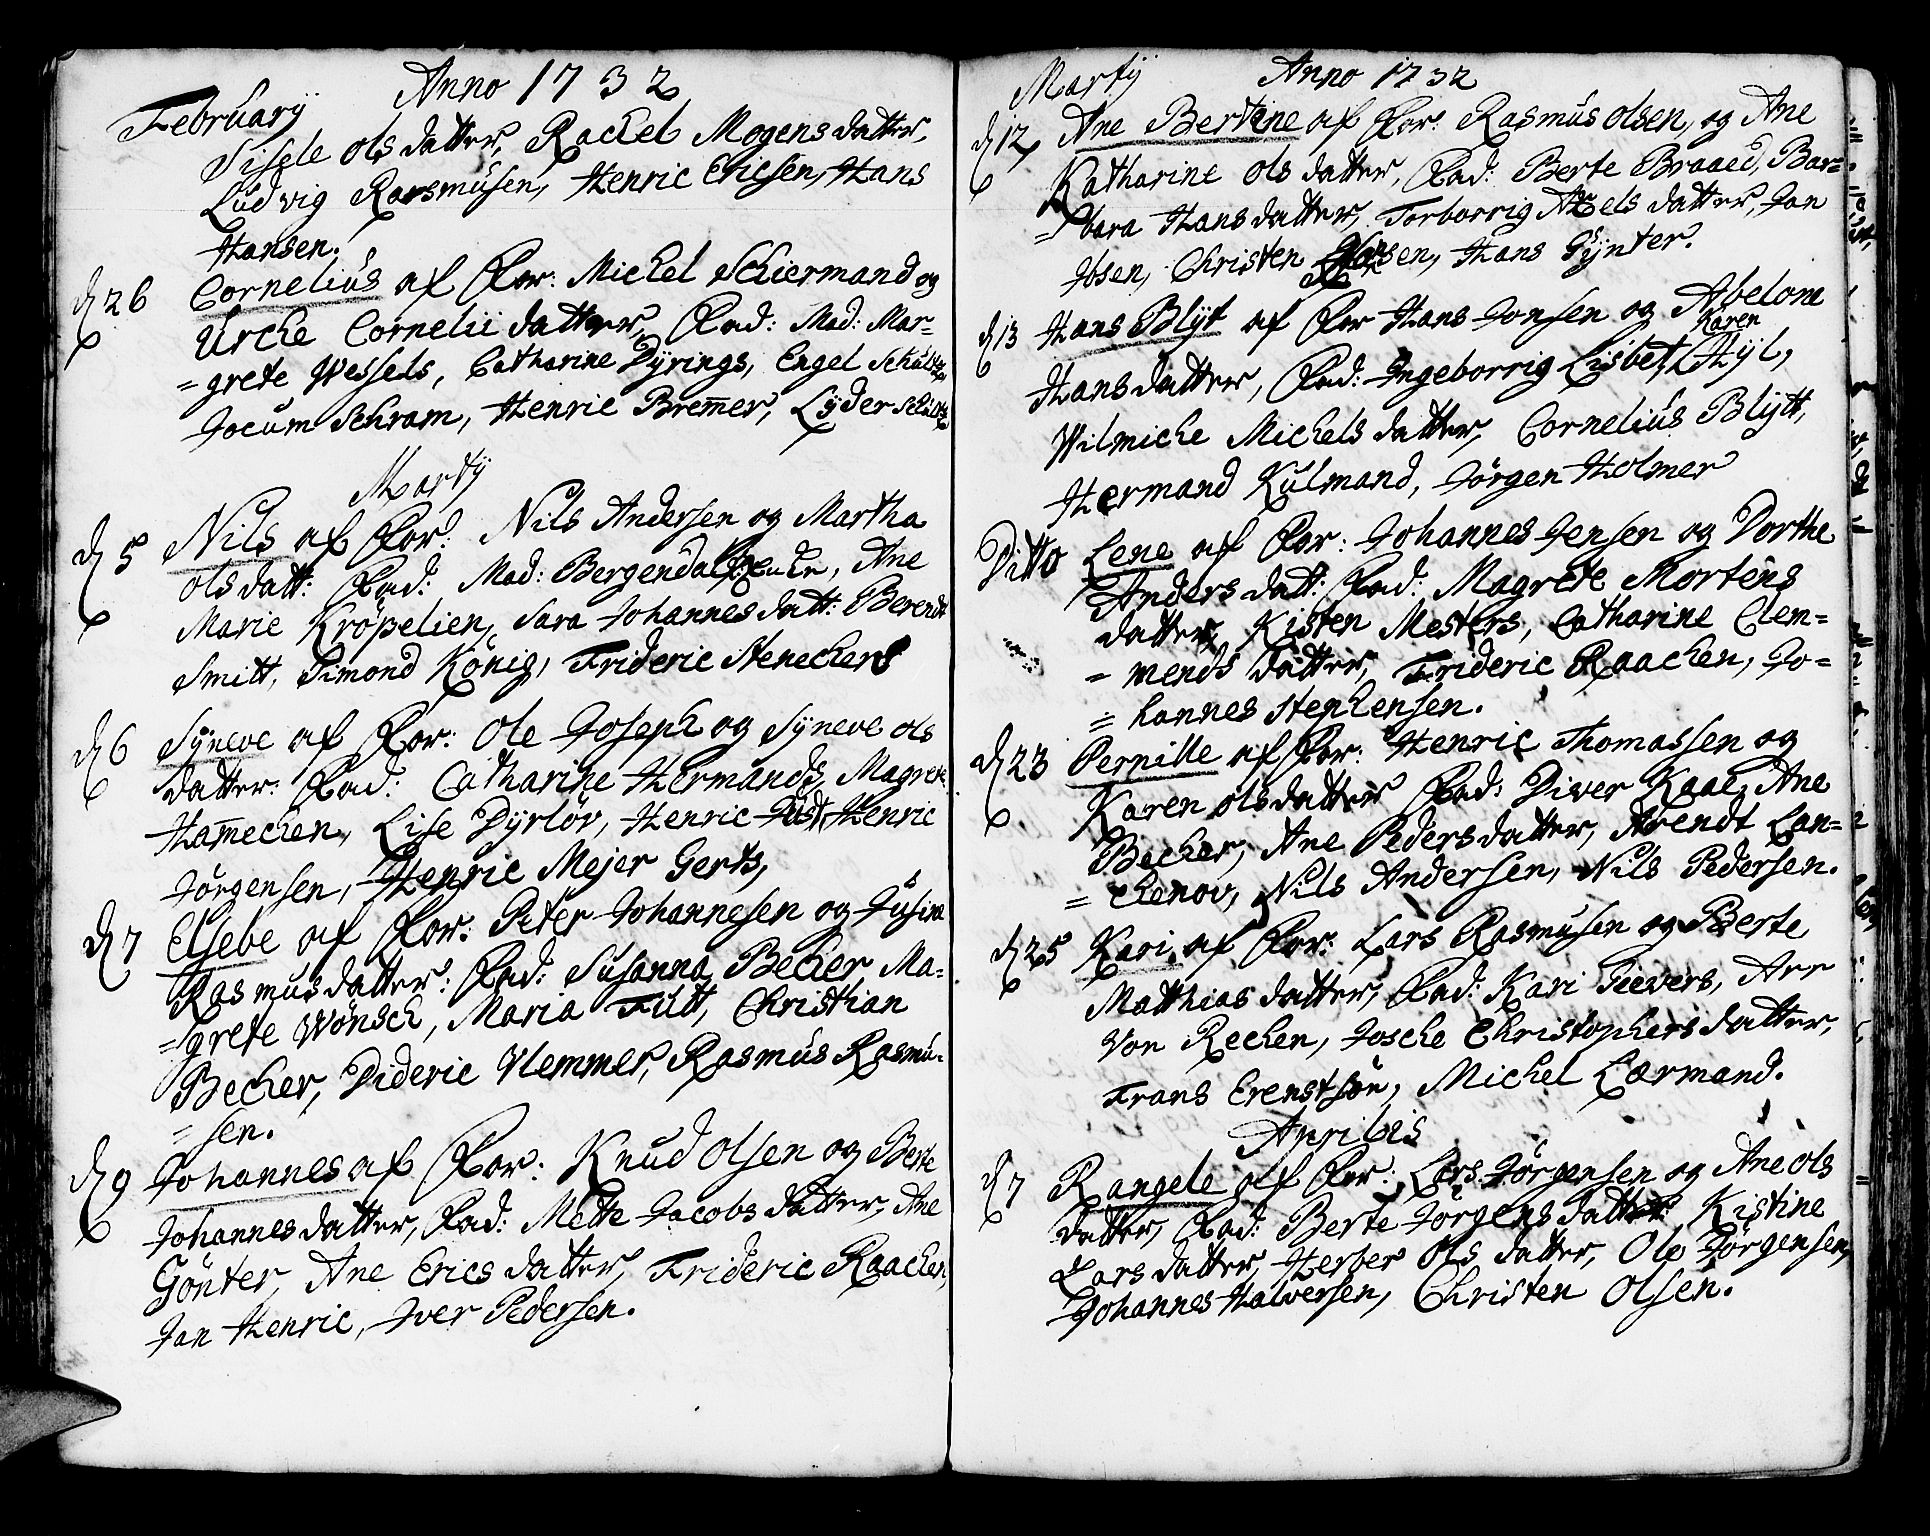 Anno 1732
Februarÿ
Sisele Ols datter, Rachel Mogens datter,
Ludvig Rasmusen, Henric Ericsen, Hans
Hansen.
d 26 Cornelius af For: Michel Schiermand og
Urche Cornelii datter, Fad: Mad: Mar=
=grete Wessels, Catharine Dÿrings, Engel
Jocum Schram, Henric Bremer, Lÿder
Martÿ
d 5 Nils af For: Nils Andersen og Martha
Ols datt: Fad: Mad: Bergendal, Ane
Marie Kröpelien, Sara Johannes datt: Berendt
Smitt, Simond König, Frideric Stenechers
d 6 Sÿneve af For: Ole Joseph og Sÿneve Ols
datter: Fad: Catharine Hermands, Magrete
Hamechen, Lise Dÿrlöv, Henric Just, Henric
Jörgensen, Henric Mejer Gerts,
d 7 Elsebe af For: Peter Johannesen og Susine
Rasmus datter: Fad: Susanna Becher Ma=
=grete Wönsch, Maria Fütt, Christian
Becher, Dideric Vlemmer, Rasmus Rasmu=
=sen.
d 9 Johannes af For: Knud Olsen og Berte
Johannes datter, Fad: Mette Jacobs datter, Ane
Gönter, Ane Erics datter, Frideric Raachen,
Jan Henric, Iver Pedersen.
Martÿ Anno 1732
d 12 Ane Bertine af For: Rasmus Olsen, og Ane
Katharine Ols datter, Fad: Berte Braaed, Bar=
=bara Hans datter, Torborrig Axels datter, Jan
Ibsen, Christen Olsen, Hans Gÿnter.
d 13 Hans Blÿt af For Hans Jonsen og Abelone
Karen
Hans datter, Fad: Ingeborrig Lisbet, Hÿl,
Wilmiche Michels datter, Cornelius Blÿtt,
Hermand Kulmand, Jörgen Holmer
Ditto Lene af For: Johannes Jensen og Dorthe
Anders datt: Fad: Magrete Mortens
datter, Kisten Mesters, Catharine Clem=
=mends datter, Frideric Raachen, Jo=
=hannes Stephensen.
d 23 Pernille af For: Henric Thomassen og
Karen Ols datter Fad: Diver Kaae, Ane
Becher, Ane Peders datter, Arendt Lan=
=chenov, Nils Andersen, Nils Pedersen.
d 25 Kari af For: Lars Rasmusen og Berte
Matthias datter, Fad: Kari Sievers, Ane
Von Rechen, Josche Christophers datter,
Frans Erenstsön, Michel Lærmand.
Aprilis
d 7 Rangele af For: Lars Jörgensen og Ane Ols
datter, Fad: Berte Jörgens datter Kistine
Lars datter, Herber Ols datter, Ole Jörgensen,
Johannes Halversen, Christen Olsen.